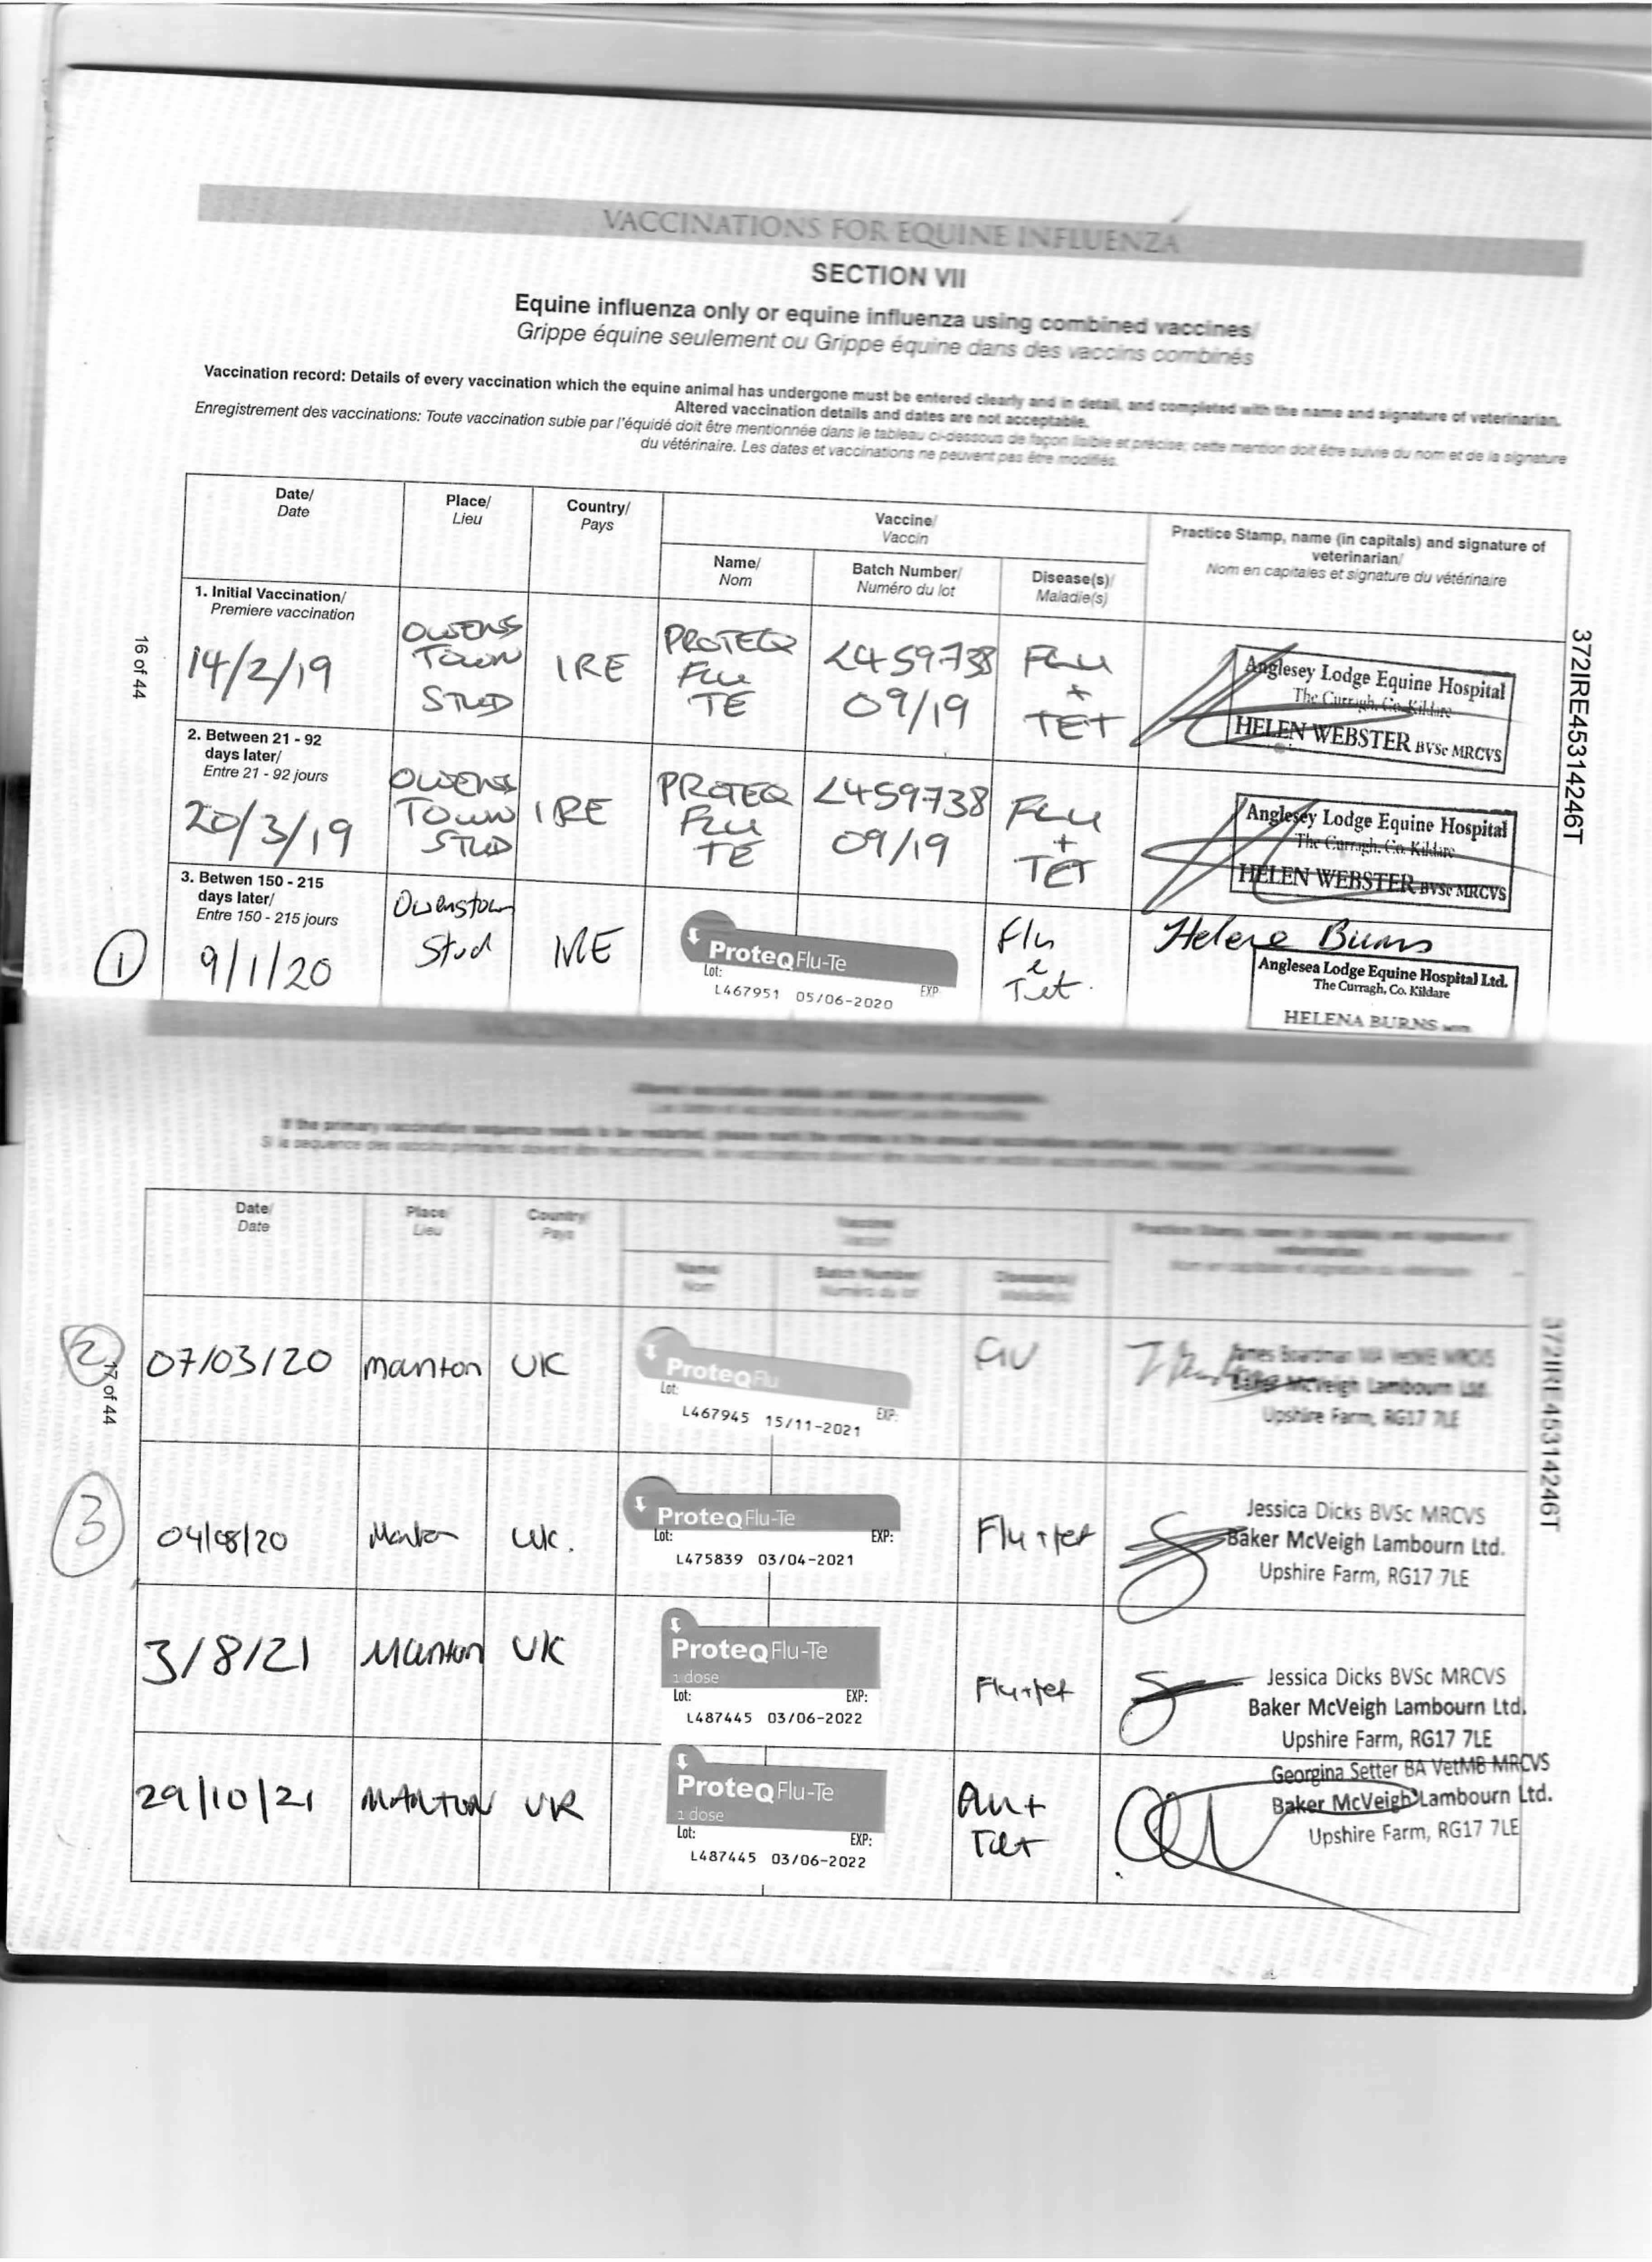 VACCINATIONS FOR EQUINE INFLUENZA
SECTION VII
Equine influenza only or equine influenza using combined vaccines/
Grippe équine seulement ou Grippe équine dans des vaccins combinés
Vaccination record: Details of every vaccination which the equine animal has undergone must be entered clearly and in detail, and completed with the name and signature of veterinarian.
Altered vaccination details and dates are not acceptable.
Enregistrement des vaccinations: Toute vaccination subie par l'équidé doit être mentionnée dans le tableau ci-dessous de façon lisible et précise; cette mention doit être suivie du nom et de la signature
du vétérinaire. Les dates et vaccinations ne peuvent pas être modifiés.
Date/
Date
Place/
Lieu
Country/
Pays
Vaccine/
Vaccin
Name/
Nom
Batch Number/
Numéro du lot
Disease(s)/
Maladie(s)
Practice Stamp, name (in capitals) and signature of
veterinarian/
Nom en capitales et signature du vétérinaire
16 of 44
372IRE45314246T
1. Initial Vaccination/
Premiere vaccination
14/2/19
OWENS
TOWN
STUD
IRE
PROTEQ
FLU
TE
L459738
09/19
FLU
+
TET
Anglesey Lodge Equine Hospital
The Curragh, Co. Kildare
HELEN WEBSTER BVSc MRCVS
2. Between 21 - 92
days later/
Entre 21 - 92 jours
20/3/19
OWENS
TOWN
STUD
IRE
PROTEQ
FLU
TE
L459738
09/19
FLU
+
TET
Anglesey Lodge Equine Hospital
The Curragh, Co. Kildare
HELEN WEBSTER BVSc MRCVS
3. Betwen 150 - 215
days later/
Entre 150 - 215 jours
1
9/1/20
Owenstown
Stud
IRE
ProteqFlu-Te
Lot:
EXP:
L467951 05/06-2020
Flu
&
Tet.
Helena Burns
Anglesea Lodge Equine Hospital Ltd.
The Curragh, Co. Kildare
HELENA BURNS
Altered vaccination details and dates are not acceptable.
Date/
Date
Place/
Lieu
Country/
Pays
Vaccine/
Vaccin
Name/
Nom
Batch Number/
Numéro du lot
Disease(s)/
Maladie(s)
17 of 44
372IRE45314246T
2
07/03/20
Manton
UK
ProteqFlu
Lot:
EXP:
L467945 15/11-2021
FLU
James Boardman MA VetMB MRCVS
Baker McVeigh Lambourn Ltd.
Upshire Farm, RG17 7LE
3
04/08/20
Manton
UK.
ProteqFlu-Te
Lot:
EXP:
L475839 03/04-2021
Flu + tet
Jessica Dicks BVSc MRCVS
Baker McVeigh Lambourn Ltd.
Upshire Farm, RG17 7LE
3/8/21
Manton
UK
ProteqFlu-Te
1 dose
Lot:
EXP:
L487445 03/06-2022
Flu+tet
Jessica Dicks BVSc MRCVS
Baker McVeigh Lambourn Ltd.
Upshire Farm, RG17 7LE
29/10/21
MANTON
UK
ProteqFlu-Te
1 dose
Lot:
EXP:
L487445 03/06-2022
Flu+
Tet
Georgina Setter BA VetMB MRCVS
Baker McVeigh Lambourn Ltd.
Upshire Farm, RG17 7LE